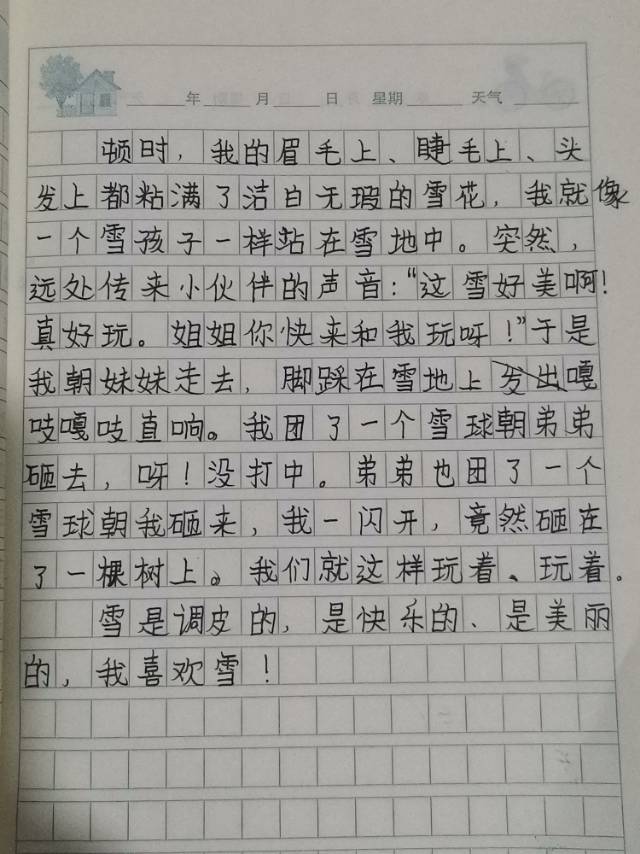 年 月 日 星期 天气
顿时，我的眉毛上、睫毛上、头
发上都粘满了洁白无瑕的雪花，我就像
一个雪孩子一样站在雪地中。突然，
远处传来小伙伴的声音：“这雪好美啊！
真好玩。姐姐你快来和我玩呀！”于是
我朝妹妹走去，脚踩在雪地上发出嘎
吱嘎吱直响。我团了一个雪球朝弟弟
砸去，呀！没打中。弟弟也团了一个
雪球朝我砸来，我一闪开，竟然砸在
了一棵树上。我们就这样玩着、玩着。
雪是调皮的，是快乐的、是美丽
的，我喜欢雪！